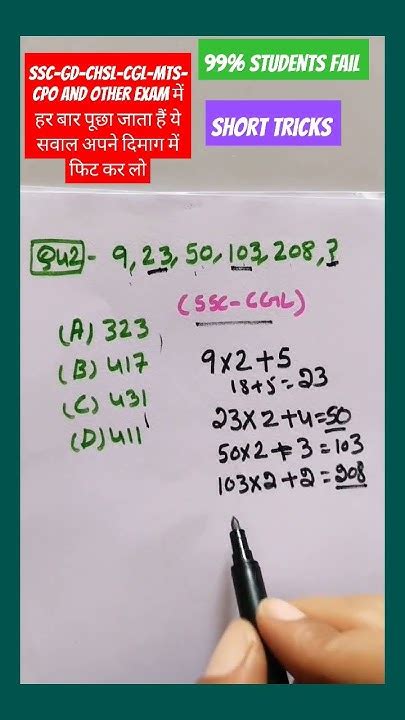 SSC-GD-CHSL-CGL-MTS-
CPO AND OTHER EXAM में
हर बार पूछा जाता हैं ये
सवाल अपने दिमाग में
फिट कर लो
99% STUDENTS FAIL
SHORT TRICKS
Qu2- 9, 23, 50, 103, 208, ?
(SSC-CGL)
(A) 323
(B) 417
(C) 431
(D) 411
9×2+5
18+5=23
23×2+4=50
50×2+3=103
103×2+2=208